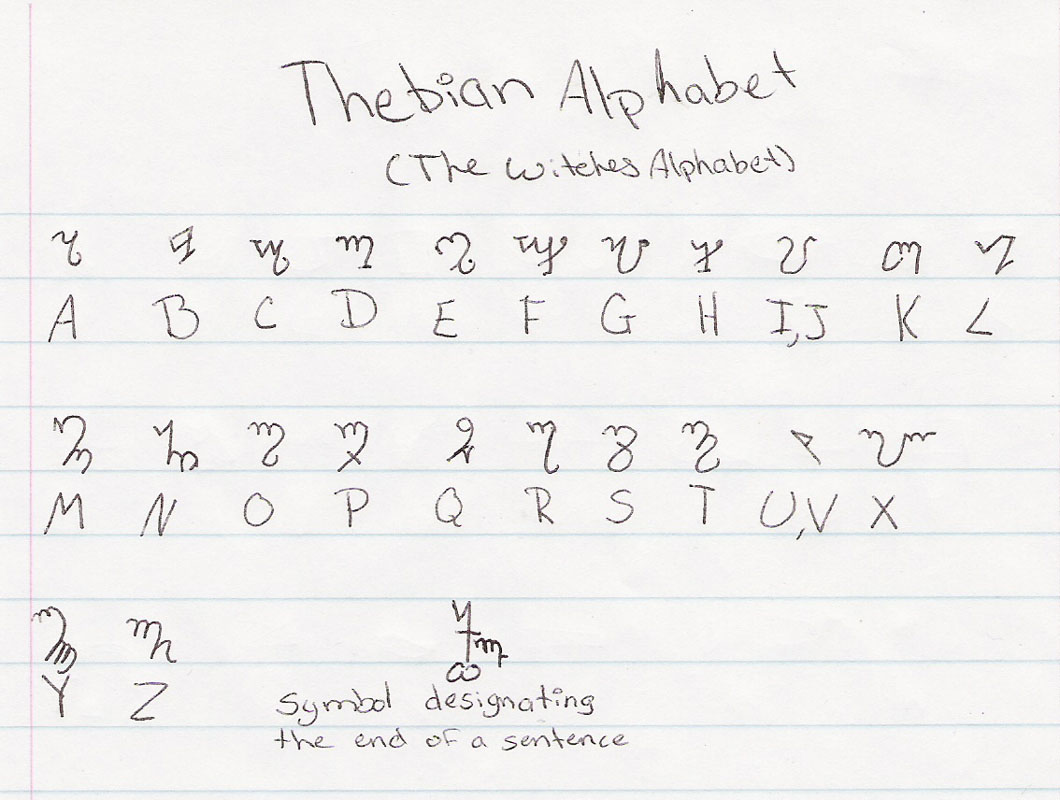 Thebian Alphabet
(The Witches Alphabet)
A B C D E F G H I,J K L
M N O P Q R S T U,V X
Y Z
Symbol designating
the end of a sentence